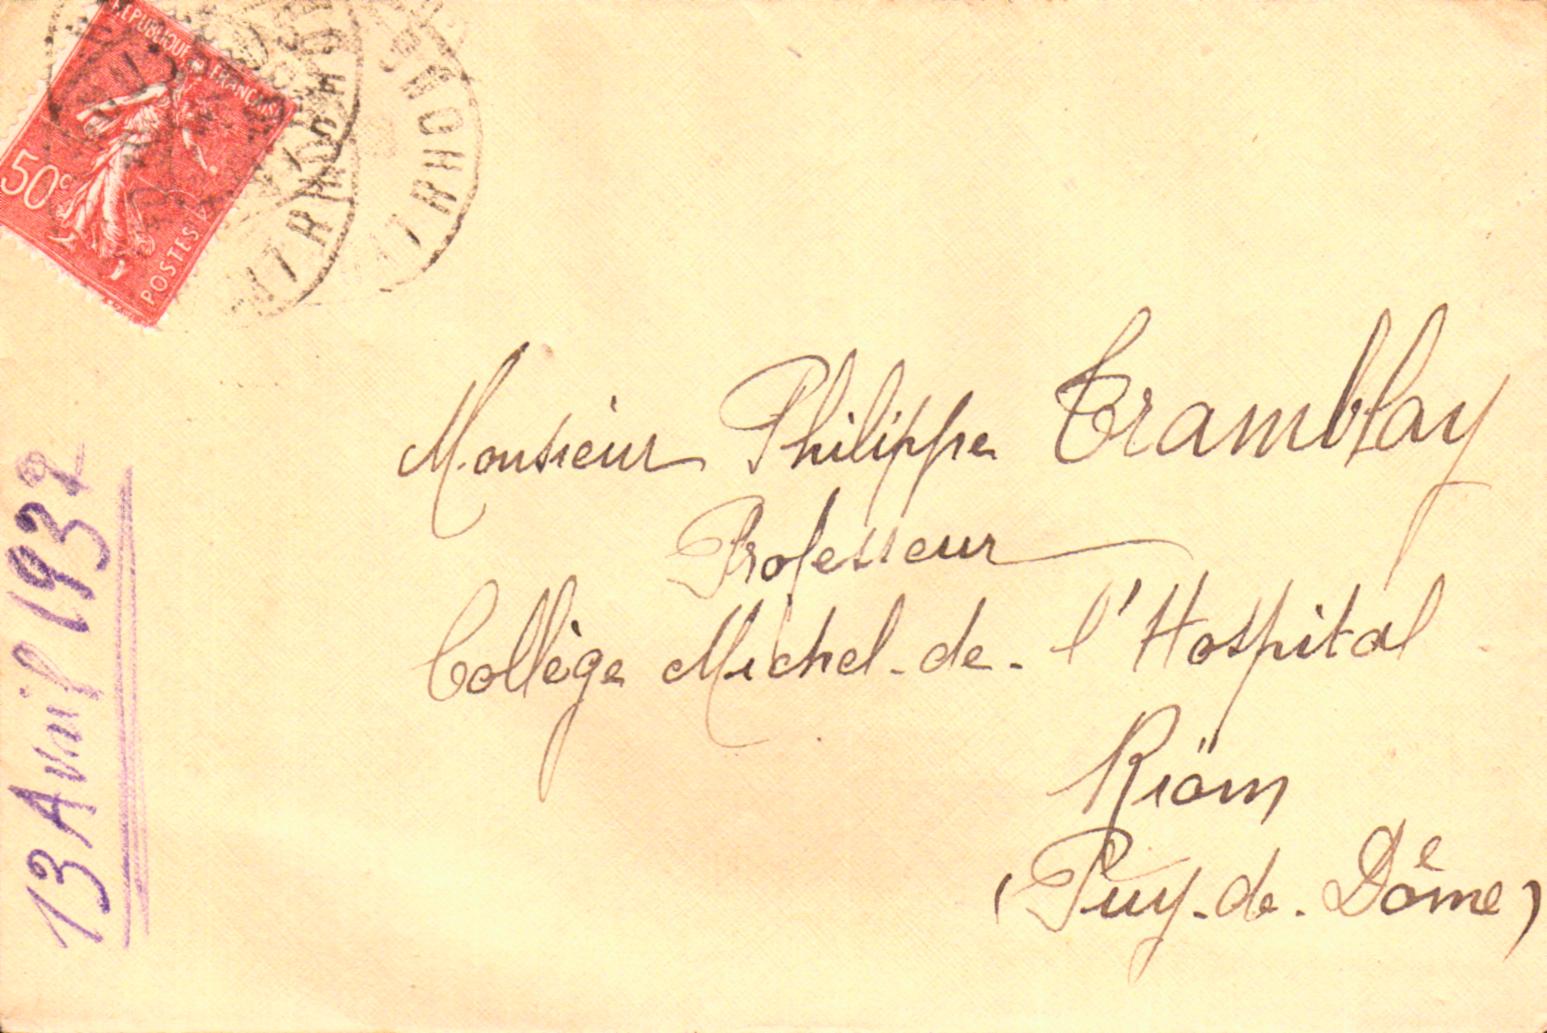 REPUBLIQUE FRANÇAISE
50c
POSTES
Monsieur Philippe Tramblay
Professeur
Collège Michel-de-l'Hospital
Riom
(Puy-de-Dôme)
13 Avril 1932